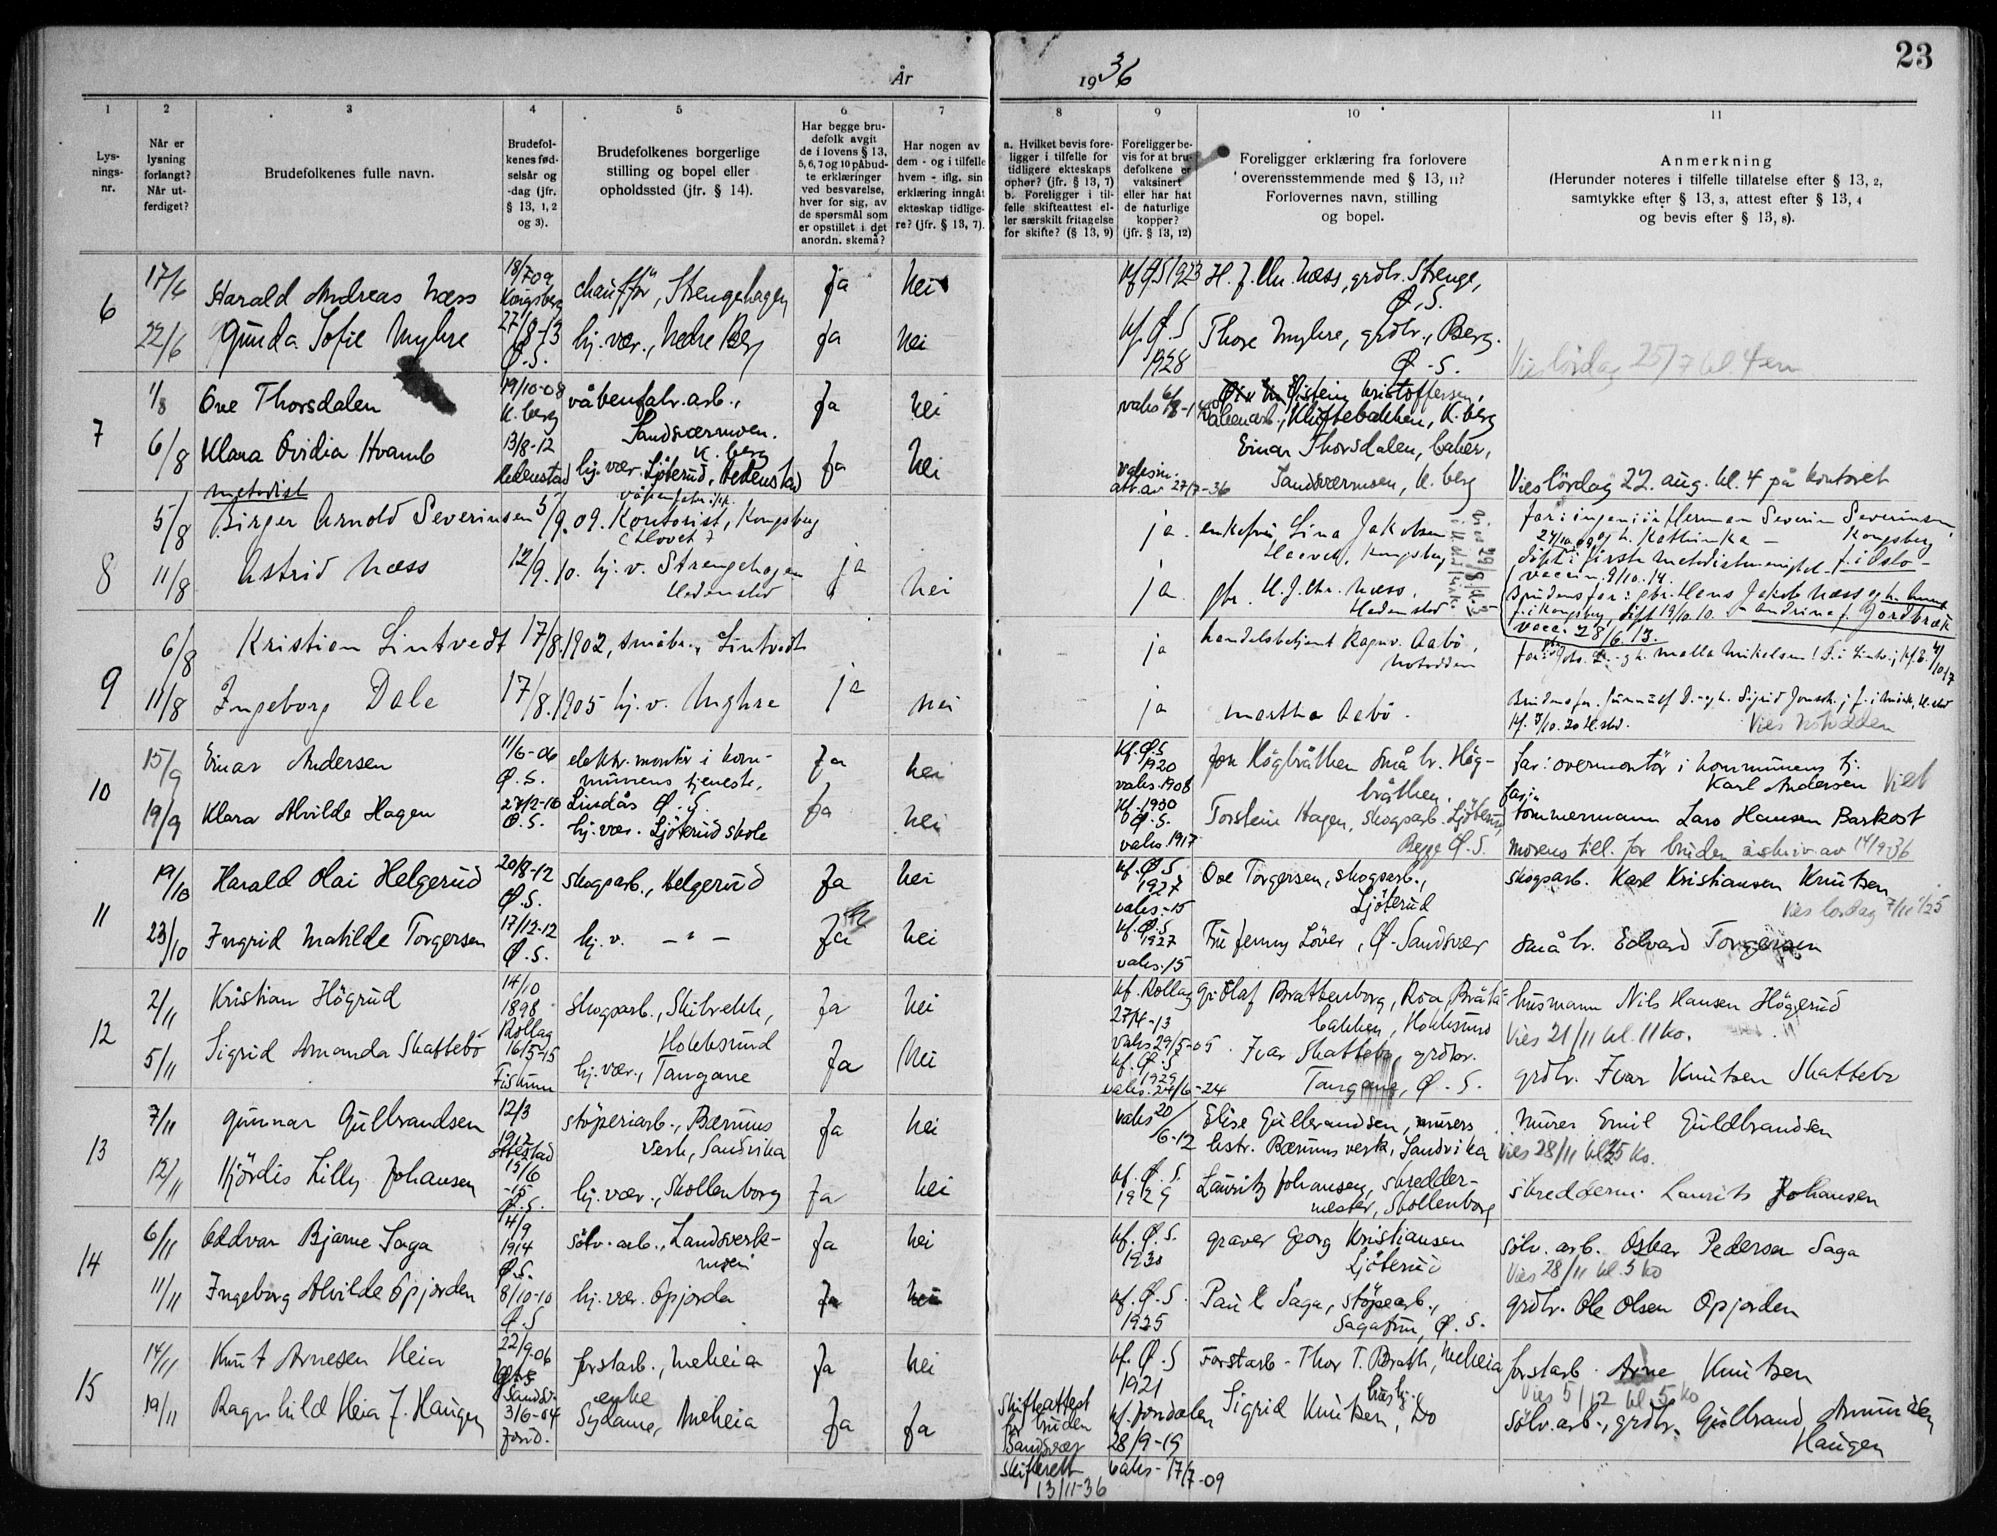 År 1936
23
1 2 3 4 5 6 7 8 9 10 11
Lys-
nings-
nr.
Når er
lysning
forlangt?
Når ut-
ferdiget?
Brudefolkenes fulle navn.
Brudefol-
kenes fød-
selsår og
-dag (jfr.
§ 13, 1, 2
og 3).
Brudefolkenes borgerlige
stilling og bopel eller
opholdssted (jfr. § 14).
Har begge bru-
defolk avgit
de i lovens § 13,
5, 6, 7 og 10 påbud-
te erklæringer
ved besvarelse,
hver for sig, av
de spørsmål som
er opstillet i det
anordn. skemå?
Har nogen av
dem - og i tilfelle
hvem - iflg. sin
erklæring inngåt
ekteskap tidlige-
re? (jfr. § 13, 7).
a. Hvilket bevis fore-
ligger i tilfelle for
tidligere ekteskaps
ophør? (jfr. § 13, 7)
b. Foreligger i til-
felle skifteattest el-
ler særskilt fritagelse
for skifte? (§ 13, 9)
Foreligger be-
vis for at bru-
defolkene er
vaksinert
eller har hat
de naturlige
kopper?
(jfr. § 13, 12)
Foreligger erklæring fra forlovere
overensstemmende med § 13, 11?
Forlovernes navn, stilling
og bopel.
Anmerkning
(Herunder noteres i tilfelle tillatelse efter § 13, 2,
samtykke efter § 13, 3, attest efter § 13, 4
og bevis efter § 13, 8).
6
17/6 Harald Andreas Næss 18/7 09 Kongsberg chaufför, Strengehagen Ja Nei H. J. Chr. Næss, grdbr. Strenge, Ø.S.
22/6 Gunda Sofie Myhre 27/8-13 Ø.S. hj. vær., Nedre Berg Ja Nei kf. Ø.S 1928 Thore Myhre, grdbr., Berg. Ø.S. Vies lördag 25/7 kl. 4 em
7
1/8 Ove Thorsdalen 19/10-08 K.berg våbenfabr. arb., Sandsværmoen. K. berg Ja Nei Öistein Kristoffersen, Våbenarb., Kliftebakken, K.berg
6/8 Klara Ovidia Hvamb 13/8-12 Hedenstad hj. vær. Ljöterud, Hedenstad Ja Nei vaksin. att. av 27/7-36 Einar Thorsdalen, baker, Sandsværmoen, K. berg Vies lördag 22. aug. kl. 4 på kontoret
8
metodist
5/8 Birger Arnold Severinsen 5/9.09. Kontorist, våpenfabrikk, Kongsberg ja enkefru Lina Jakobsen Haavet, Kongsberg far: ingeniör Herman Severin Severinsen,
11/8 Astrid Næss 12/9.10. hj. v. Strengehagen Hedenstad ja nei ja gbr. H. J. Chr. Næss. Hedenstad
döpt i förste metodistmenighet f. i Oslo -
vaccin. 9/10.14.
Brudens far: gbr. Hans Jakob Næss og h.
f. i Kongsberg, döpt 19/10 10.
vacc. 28/6.13.
9
6/8 Kristian Lintvedt 17/8.1902, småbr., Lintvedt ja handelsbetjent Ragnv. Aabö, Notodden
11/8 Ingeborg Dale 17/8.1905 hj. v. Myhre ja nei ja Martha Aabö. Vies Notodden
10
15/9 Einar Andersen 11/6-06 Ø.S. elektr. montör i kom- munens tjeneste, Lindås Ø.S. Ja Nei kf. Ø.S 1920 vaks. 1908 Jon Högbråthen små br. Hög- bråthen. far: overmontör i kommunens tj. Karl Andersen Viet
19/9 Klara Alvilde Hagen 27/2-16 Ø.S. hj. vær. Ljöterud skole Ja Nei kf. 1930 Ø.S. vaks. 1917 Torstein Hagen, skogsarb. Ljöterud, Begge Ø.S. tömmermann Lars Hansen Barkost
morens till. for bruden i skriv. av 14/9 36
11
19/10 Harald Olai Helgerud 20/8-12 Ø.S. skogsarb., Helgerud Ja Nei kf. Ø.S. 1927 vaks.-15 Ove Torgersen, skogsarb., Ljöterud skogsarb. Karl Kristiansen Knutsen
Vies lördag 7/11
23/10 Ingrid Matilde Torgersen 17/12-12 Ø.S. hj. v. - " - Ja Nei kf. Ø.S. 1927 vaks.15 Fru Jenny Löver, Ø-Sandsvær små br. Edvard Torgersen
12
2/11 Kristian Högrud 14/10 1898 Rollag skogsarb., Skibrekk, Hokksund Ja Nei kf. Rollag 27/4-13 Olaf Brattenborg, Roa, Bråta- bakken, Hokksund husmann Nils Hansen Högerud
Vies 21/11 kl. 11 ko.
5/11 Sigrid Amanda Skattebö 16/5-15 Fiskum hj. vær., Tangane Ja Nei kf. Ø.S 1929 vaks. 24/6-24 Ivar Skattebö, grdbr. Tangane, Ø.S. grdbr. Ivar Knutsen Skattebö
13
7/11 Gunnar Gulbrandsen 12/3 1912 stöperiarb., Bærums Verk, Sandvika Ja Nei vaks 20/6-12 Elise Gulbrandsen, murers hstr. Bærums verk, Sandvika Murer Emil Guldbrandsen
Vies 28/11 kl. 5 ko.
12/11 Hjördis Lilly Johansen 15/6 -15 Ø.S. hj. vær., Skollenborg Ja Nei kf. Ø.S. 1929 Lauritz Johansen, skredder- mester, Skollenborg skredderm. Laurits Johansen
14
6/11 Oddvar Bjarne Saga 4/9 1914 Ø.S. sölv. arb., Landsverk- moen Ja Nei kf. Ø.S. 1930 graver Georg Kristiansen Ljöterud sölv. arb. Oskar Pedersen Saga
Vies 28/11 kl. 5 ko
11/11 Ingeborg Alvilde Opjorden 8/10-10 Ø.S hj. vær. Opjorda Ja Nei kf. Ø.S. 1925 Paul Saga, stöpearb., Sagatun, Ø.S. grdbr. Ole Olsen Opjorden
15
14/11 Knut Arnesen Heia 22/9-06 forstarb., Meheia Ja Nei kf. Ø.S 1921 Forstarb. Thor T. Bratli, Meheia forstarb. Arne Knutsen
Vies 5/12 kl. 5 ko
19/11 Ragnhild Heia f. Haugen 3/6-04 Jond. enke Sydame, Meheia Ja Ja Skifteattest for bruden Sandsvær skifterett 13/11-36 kf. Jondalen 28/9-19 vaks- 17/7-09 Sigrid Knutsen, husfr. do sölv. arb., grdbr. Gulbrand Amundsen Haugen